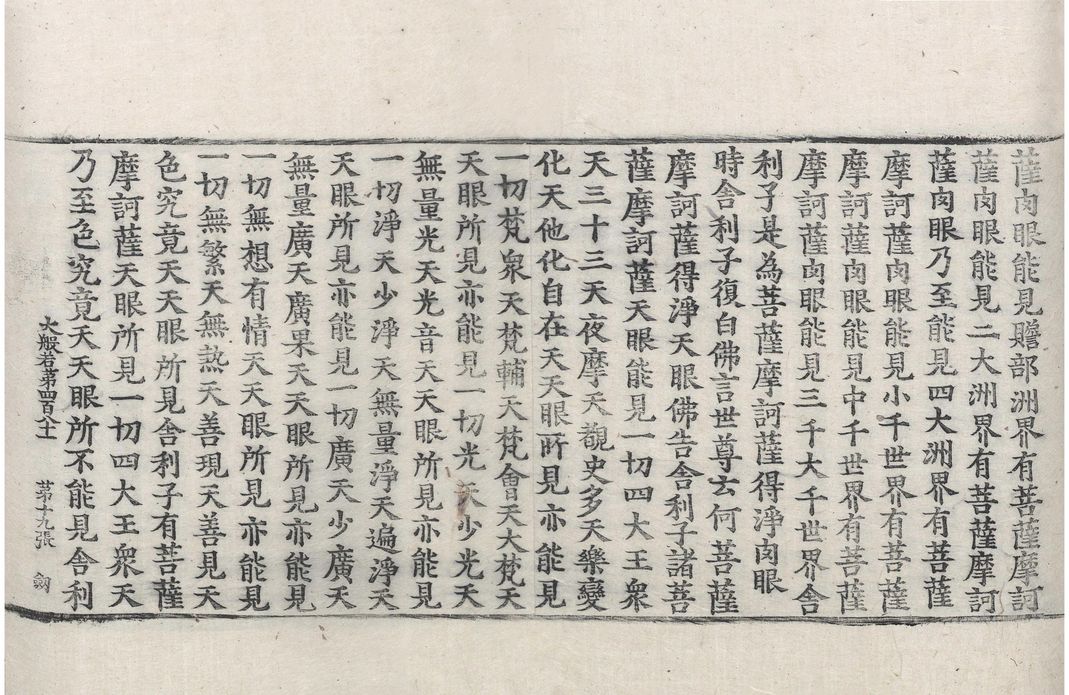 薩肉眼能見贍部洲界有菩薩摩訶
薩肉眼能見二大洲界有菩薩摩訶
薩肉眼乃至能見四大洲界有菩薩
摩訶薩肉眼能見小千世界有菩薩
摩訶薩肉眼能見中千世界有菩薩
摩訶薩肉眼能見三千大千世界舍
利子是為菩薩摩訶薩得淨肉眼
時舍利子復白佛言世尊云何菩薩
摩訶薩得淨天眼佛告舍利子諸菩
薩摩訶薩天眼能見一切四大王衆
天三十三天夜摩天覩史多天樂變
化天他化自在天天眼所見亦能見
一切梵衆天梵輔天梵會天大梵天
天眼所見亦能見一切光天少光天
無量光天光音天天眼所見亦能見
一切淨天少淨天無量淨天遍淨天
天眼所見亦能見一切廣天少廣天
無量廣天廣果天天眼所見亦能見
一切無想有情天天眼所見亦能見
一切無繁天無熱天善現天善見天
色究竟天天眼所見舍利子有菩薩
摩訶薩天眼所見一切四大王衆天
乃至色究竟天天眼所不能見舍利
大般若第四百 第十九張